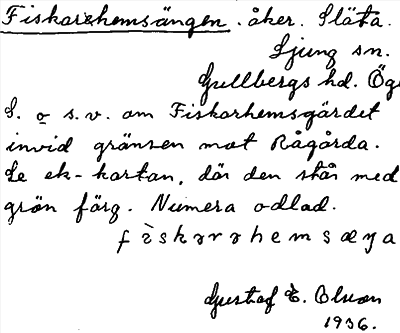 Fiskarehemsängen. åker. Släta.
Ljung sn.
Gullbergs hd. Ög
S. o s.v. om Fiskarhemsgärdet
invid gränsen mot Rågårda.
Se ek-kartan, där den står med
grön färg. Numera odlad.
fìskərəhemsæŋa
Gustaf E. Olson
1936.